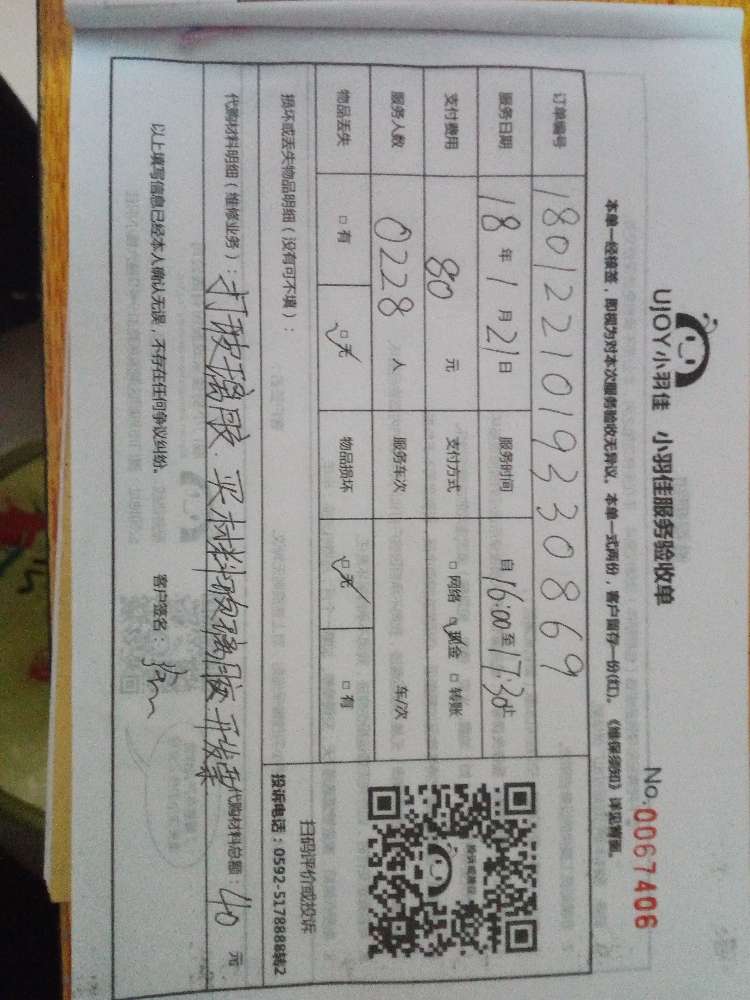 UJOY小羽佳 小羽佳服务验收单
No.0067406
本单一经核签，即视为对本次服务验收无异议。本单一式两份，客户留存一份(红)。《维保须知》详见背面。
订单编号 180122101933 0869
服务日期 18年1月21日 服务时间 自16:00至17:30止
支付费用 80元 支付方式 □网络 □现金 □转账
服务人数 0228人 服务车次 车/次
物品丢失 □有 □无 物品损坏 □无 □有
损坏或丢失物品明细（没有可不填）：
扫码评价或投诉
投诉电话：0592-5178888转2
代购材料明细（维修业务）：打玻璃胶.买材料玻璃胶开发票 代购材料总额：40元
以上填写信息已经本人确认无误，不存在任何争议纠纷。 客户签名：